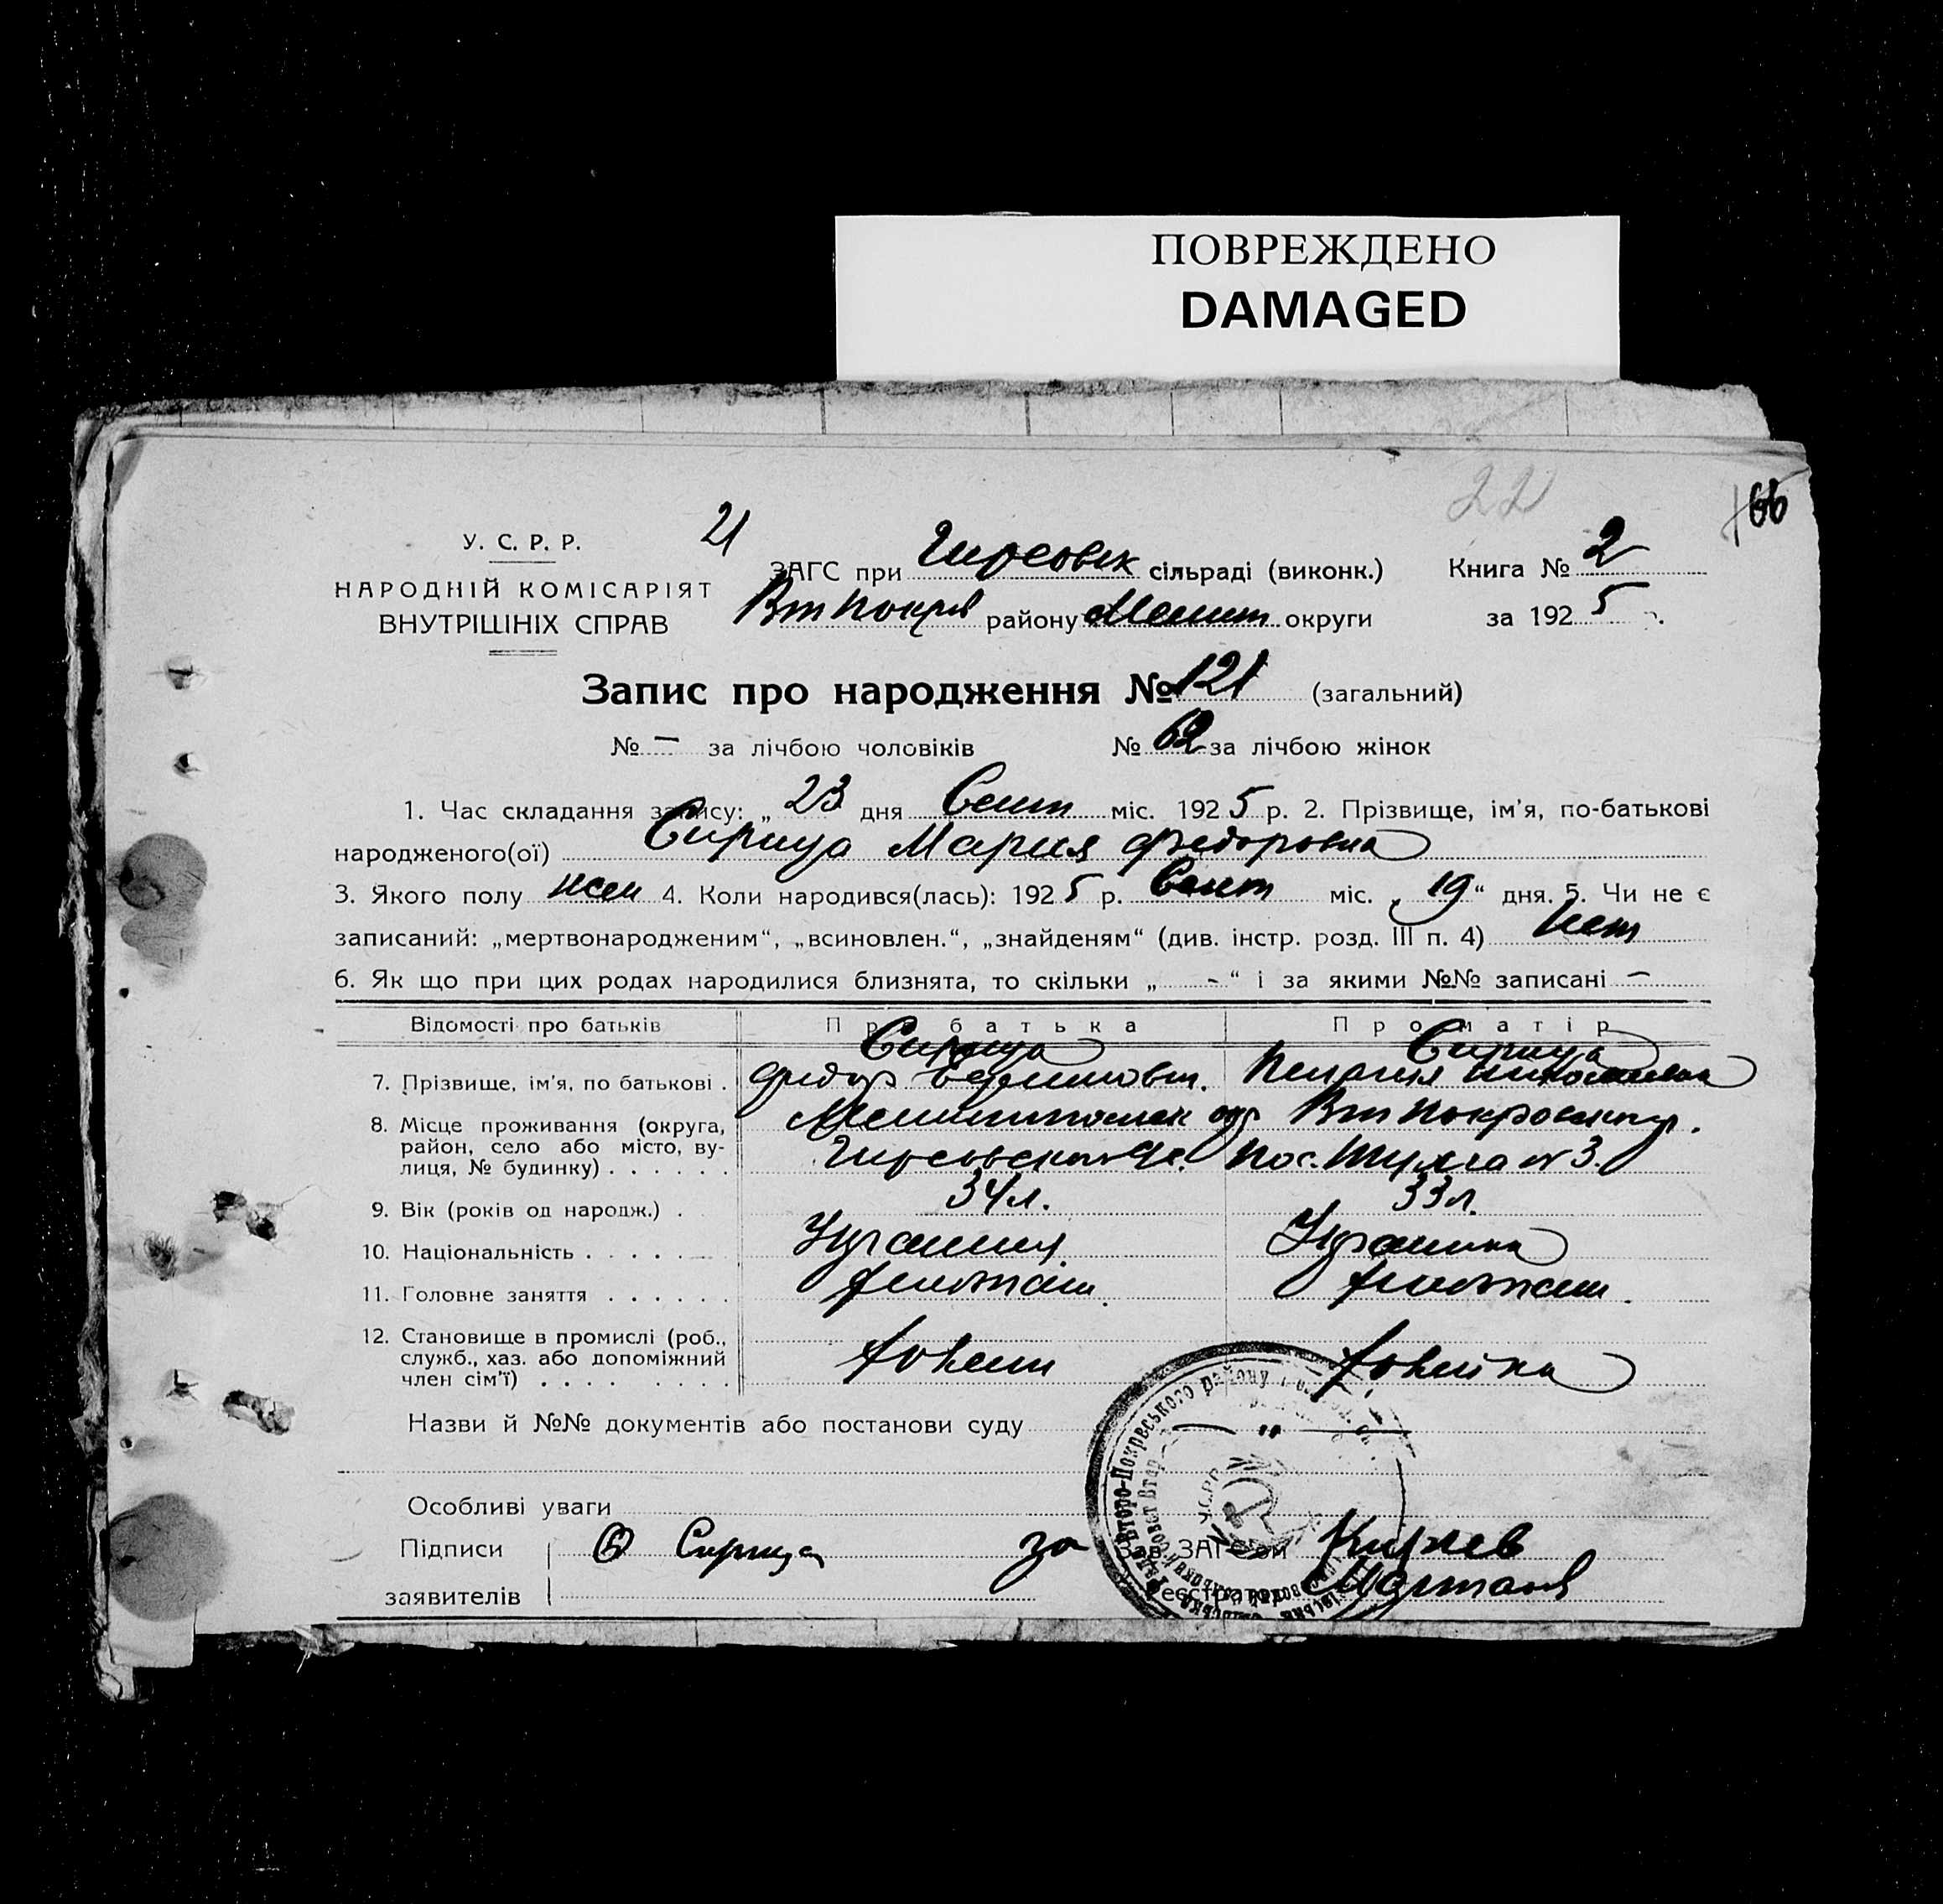 ПОВРЕЖДЕНО
DAMAGED
22
166
У. С. Р. Р.
21
ЗАГС при Гирсовск сільраді (виконк.) Книга № 2
НАРОДНІЙ КОМІСАРІЯТ
ВНУТРІШНІХ СПРАВ
Вт Покров району Мелит округи за 1925 р.
Запис про народження № 121 (загальний)
№ — за лічбою чоловіків № 62 за лічбою жінок
1. Час складання запису: „ 23 дня Сент міс. 1925 р. 2. Прізвище, ім'я, по-батькові
народженого(ої) Сирица Мария Федоровна
3. Якого полу жен 4. Коли народився(лась): 1925 р. Сент міс. „ 19 “ дня. 5. Чи не є
записаний: „мертвонародженим“, „всиновлен.“, „знайденям“ (див. інстр. розд. III п. 4) Нет
6. Як що при цих родах народилися близнята, то скільки „ - “ і за якими №№ записані —
Відомості про батьків Про батька Про матір
Сирица Сирица
7. Прізвище, ім'я, по батькові . Федор Пелагия Николаевна
8. Місце проживання (округа, Мелитопольск окр Вт Покровск р.
район, село або місто, ву-
лиця, № будинку) . . . . . . Гирсовского Пос. Шульга № 3.
9. Вік (років од народж.) . 34 л. 33 л.
10. Національність . . . . . Украинец Украинка
11. Головне заняття . . . . . . хлебопаш. хлебопаш.
12. Становище в промислі (роб.,
служб., хаз. або допоміжний хозяин хозяйка
член сім'ї) . . . . . . . .
Назви й №№ документів або постанови суду
Особливі уваги
Підписи Ф Сирица за Зав. ЗАГСом Киряев
заявителів Реєстратор